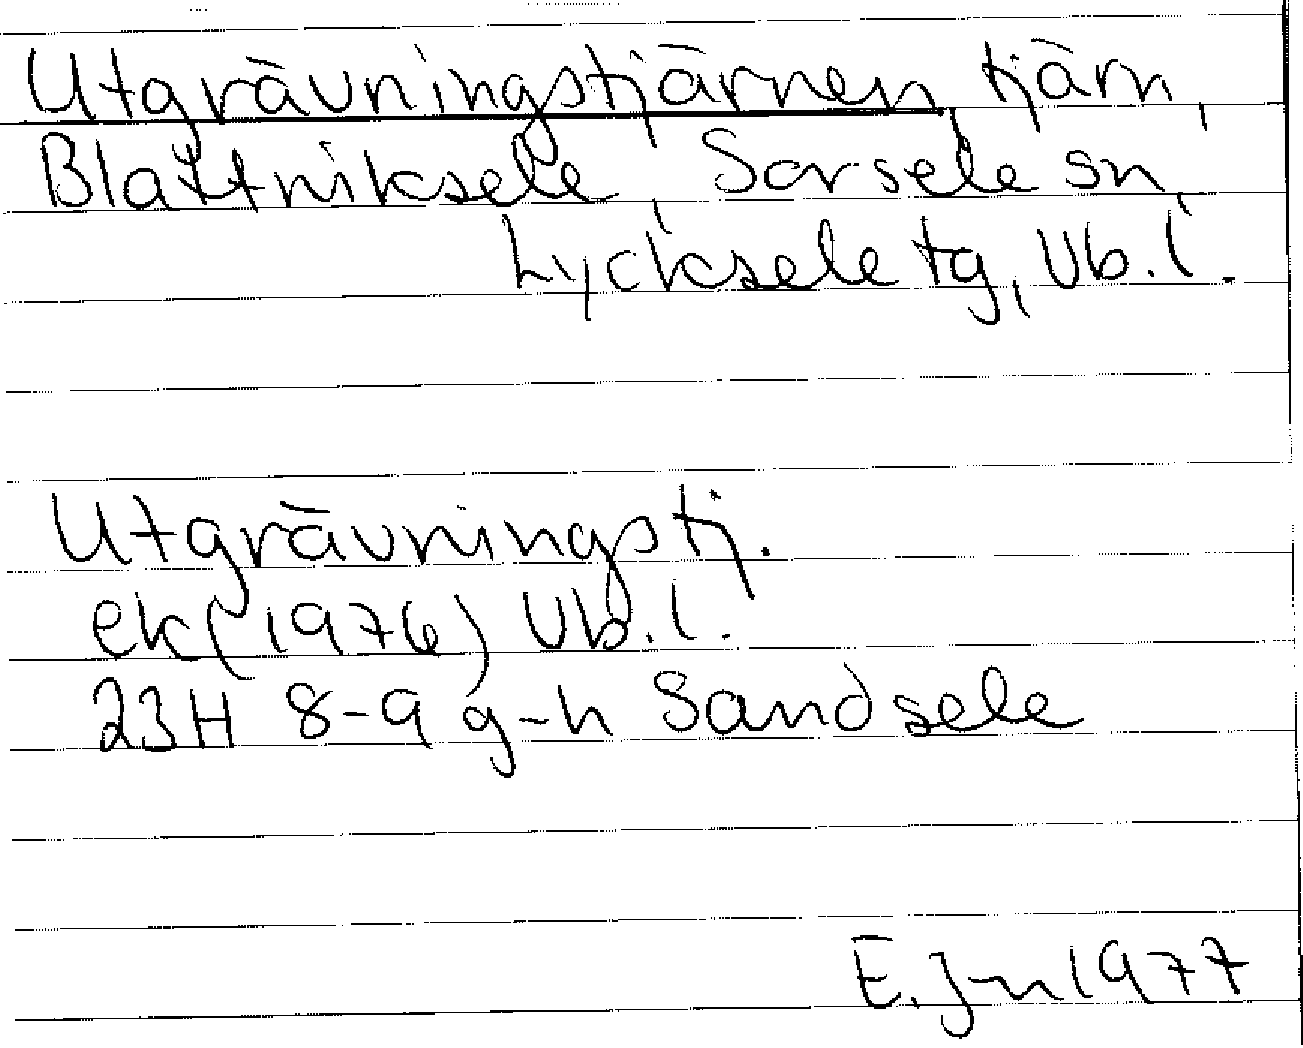 Utgrävningstjärnen, tjärn,
Blattniksele, Sorsele sn,
Lycksele tg, Vb.l.
Utgrävningstj.
ek(1976) Vb.l.
23H 8-9 g-h Sandsele
E.Jn 1977